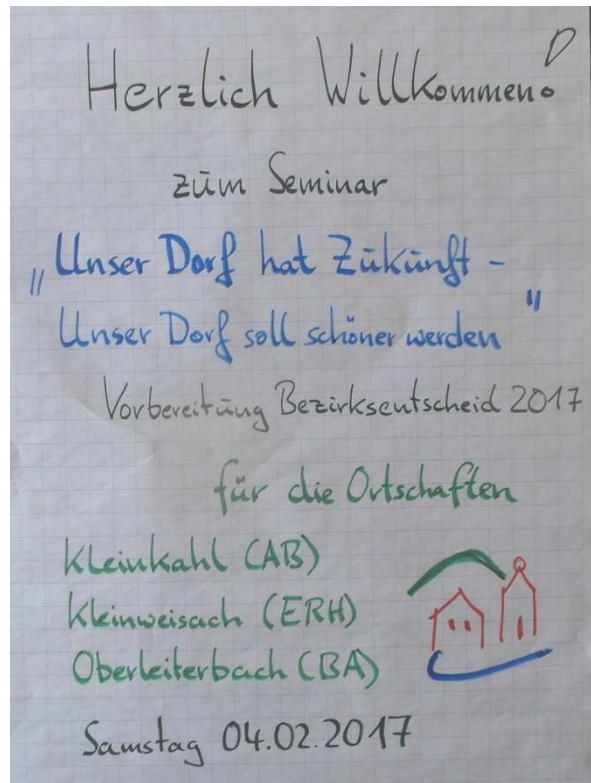 Herzlich Willkommen!
zum Seminar
„Unser Dorf hat Zukunft -
Unser Dorf soll schöner werden"
Vorbereitung Bezirksentscheid 2017
für die Ortschaften
Kleinkahl (AB)
Kleinweisach (ERH)
Oberleiterbach (BA)
Samstag 04.02.2017